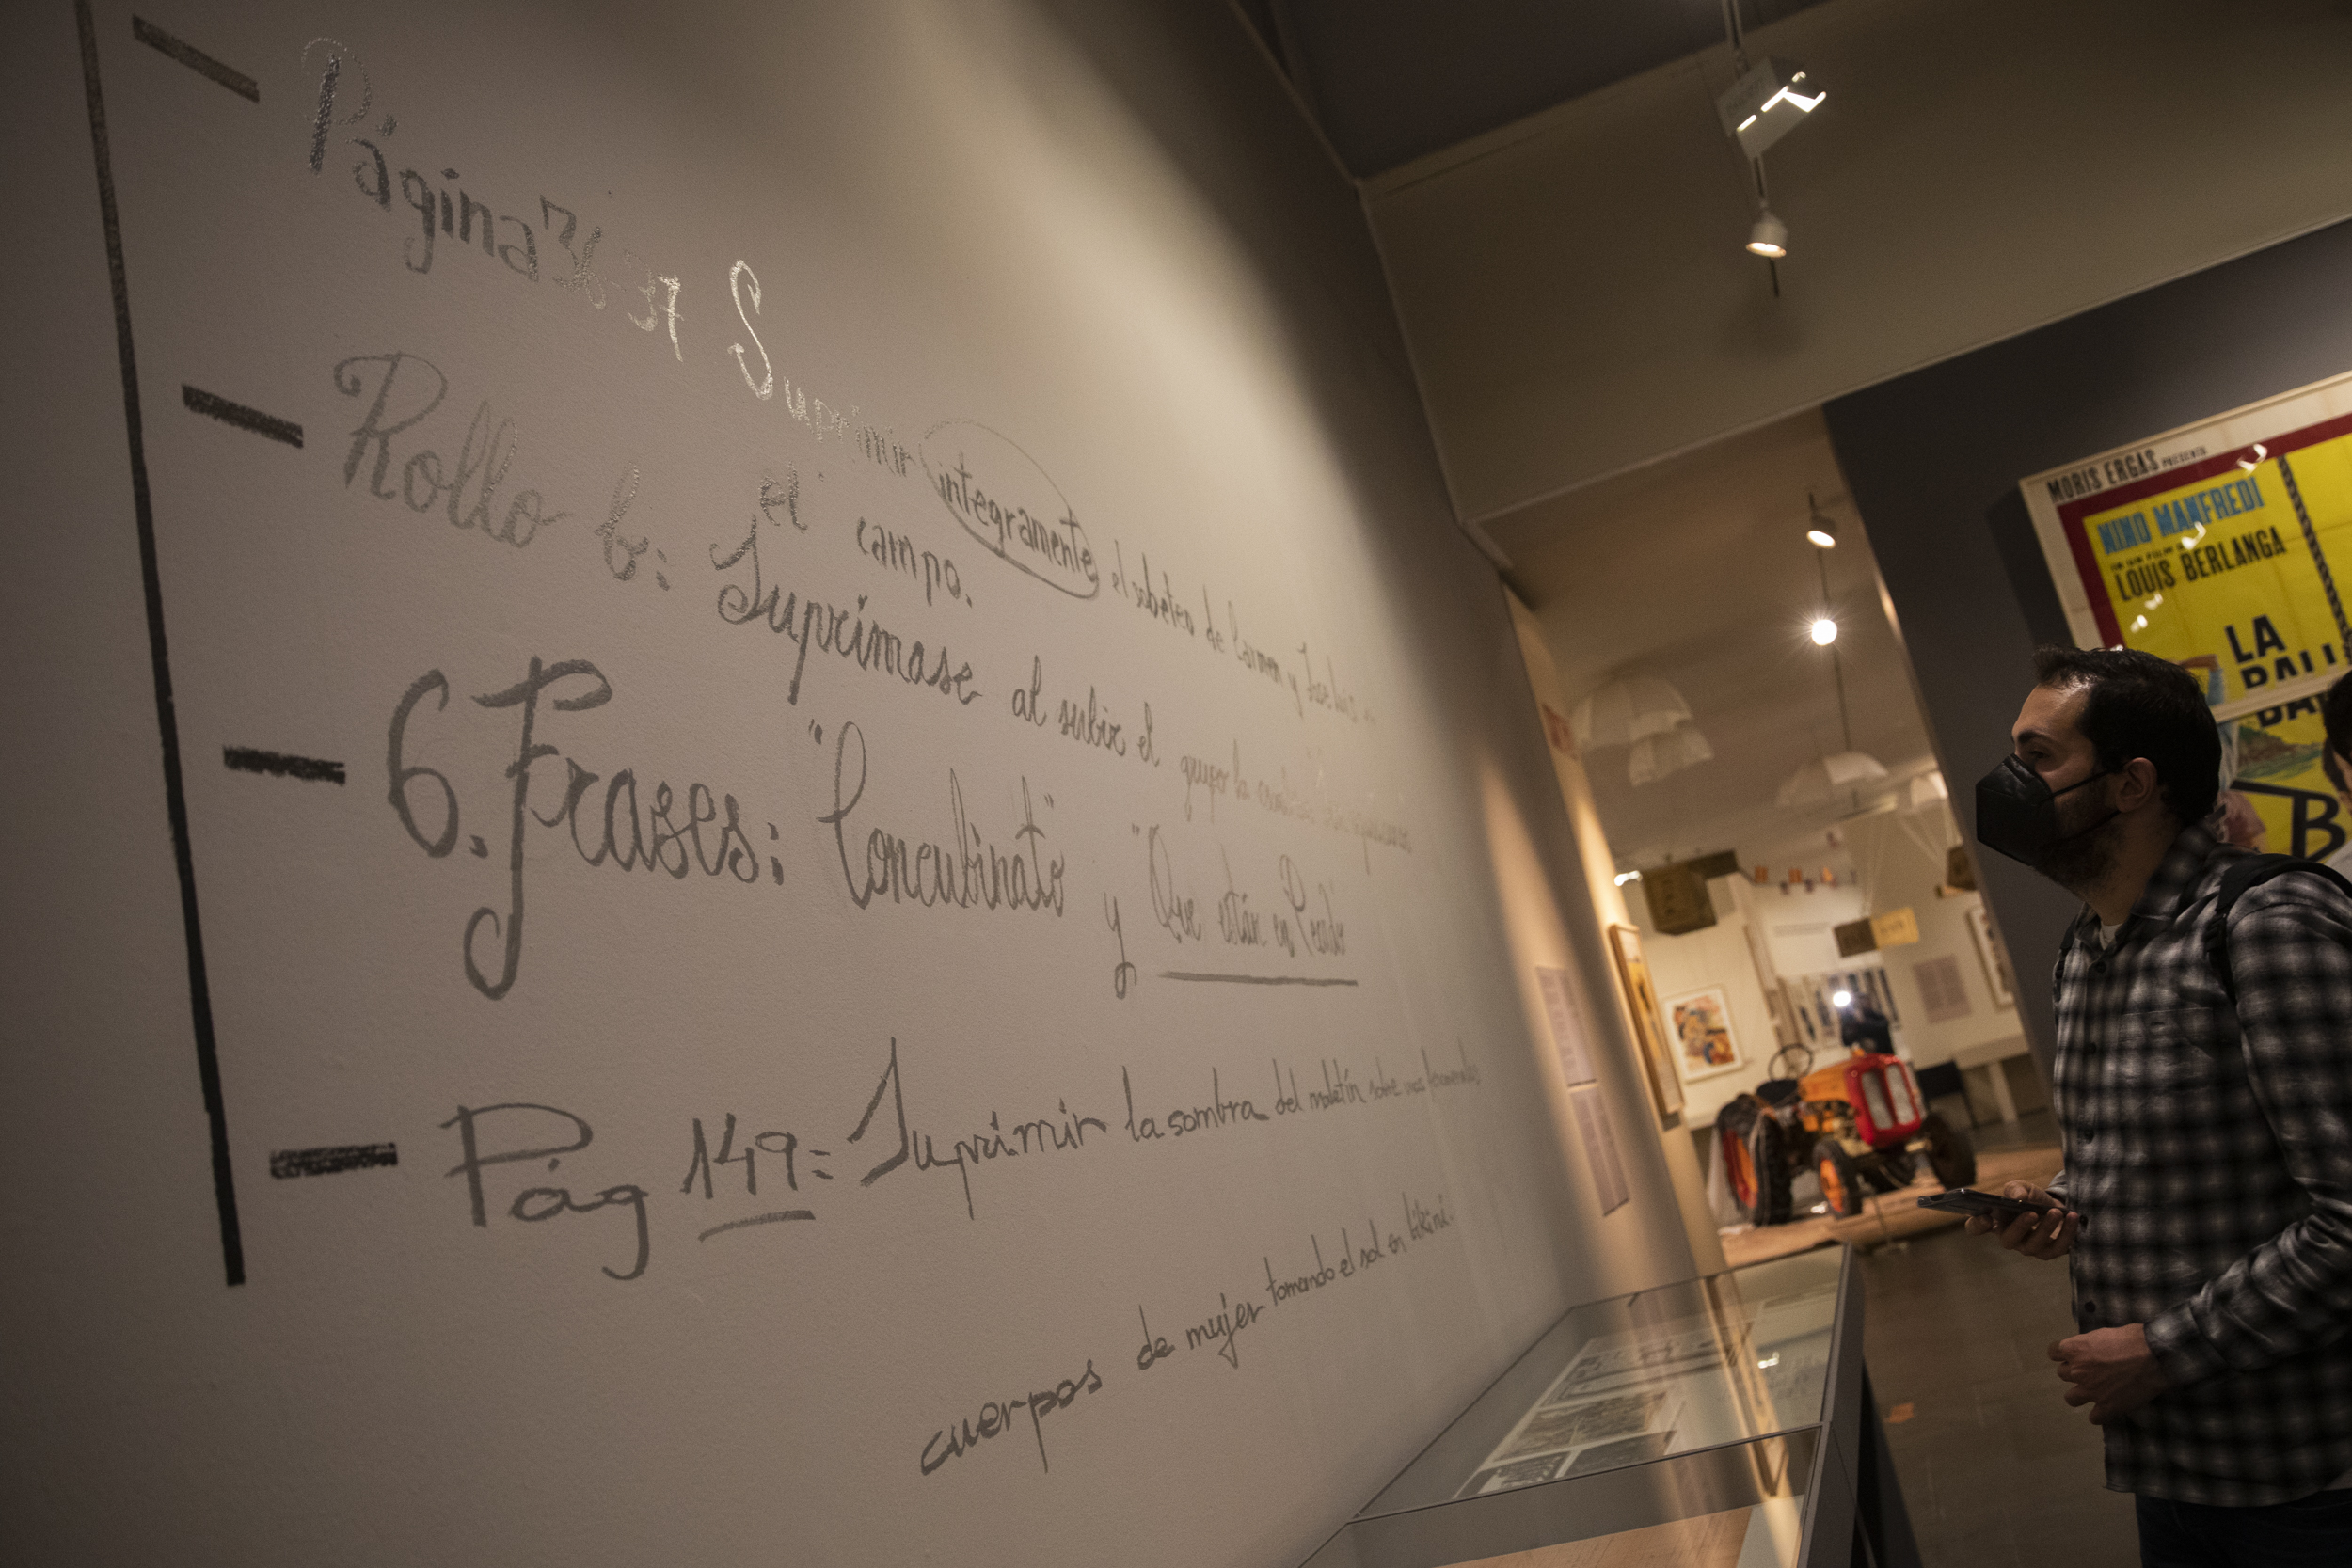 Página 36-37 Suprimir integramente el sobeteo de Carmen y Jose Luis en
el campo.
Rollo 6: Suprímase al subir el grupo la
6. Frases: "Concubinato" y "Que están en Pecado"
Pág 149= Suprimir la sombra del maletín sobre unos
cuerpos de mujer tomando el sol en bikini.
MORIS ERGAS PRESENTA
NINO MANFREDI
IN UN FILM DI
LOUIS BERLANGA
LA